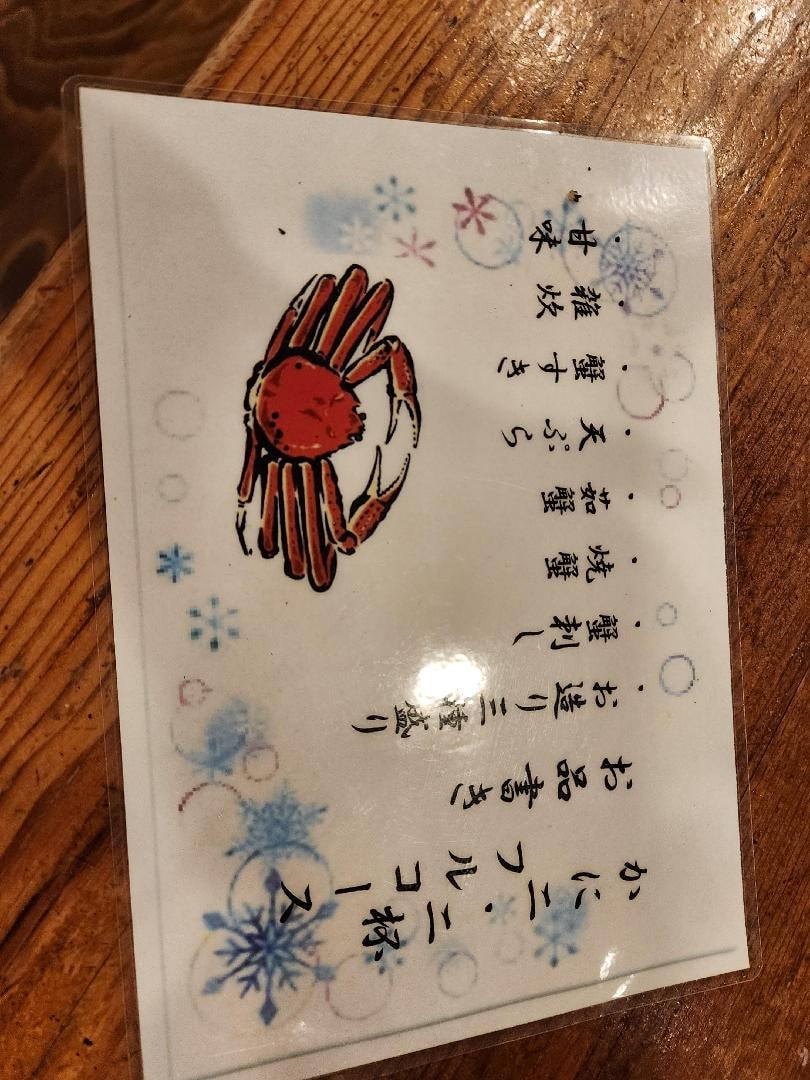 かに二・二杯
フルコース
お品書き
・お造り三種盛り
・蟹刺し
・焼蟹
・茹蟹
・天ぷら
・蟹すき
・雑炊
・甘味